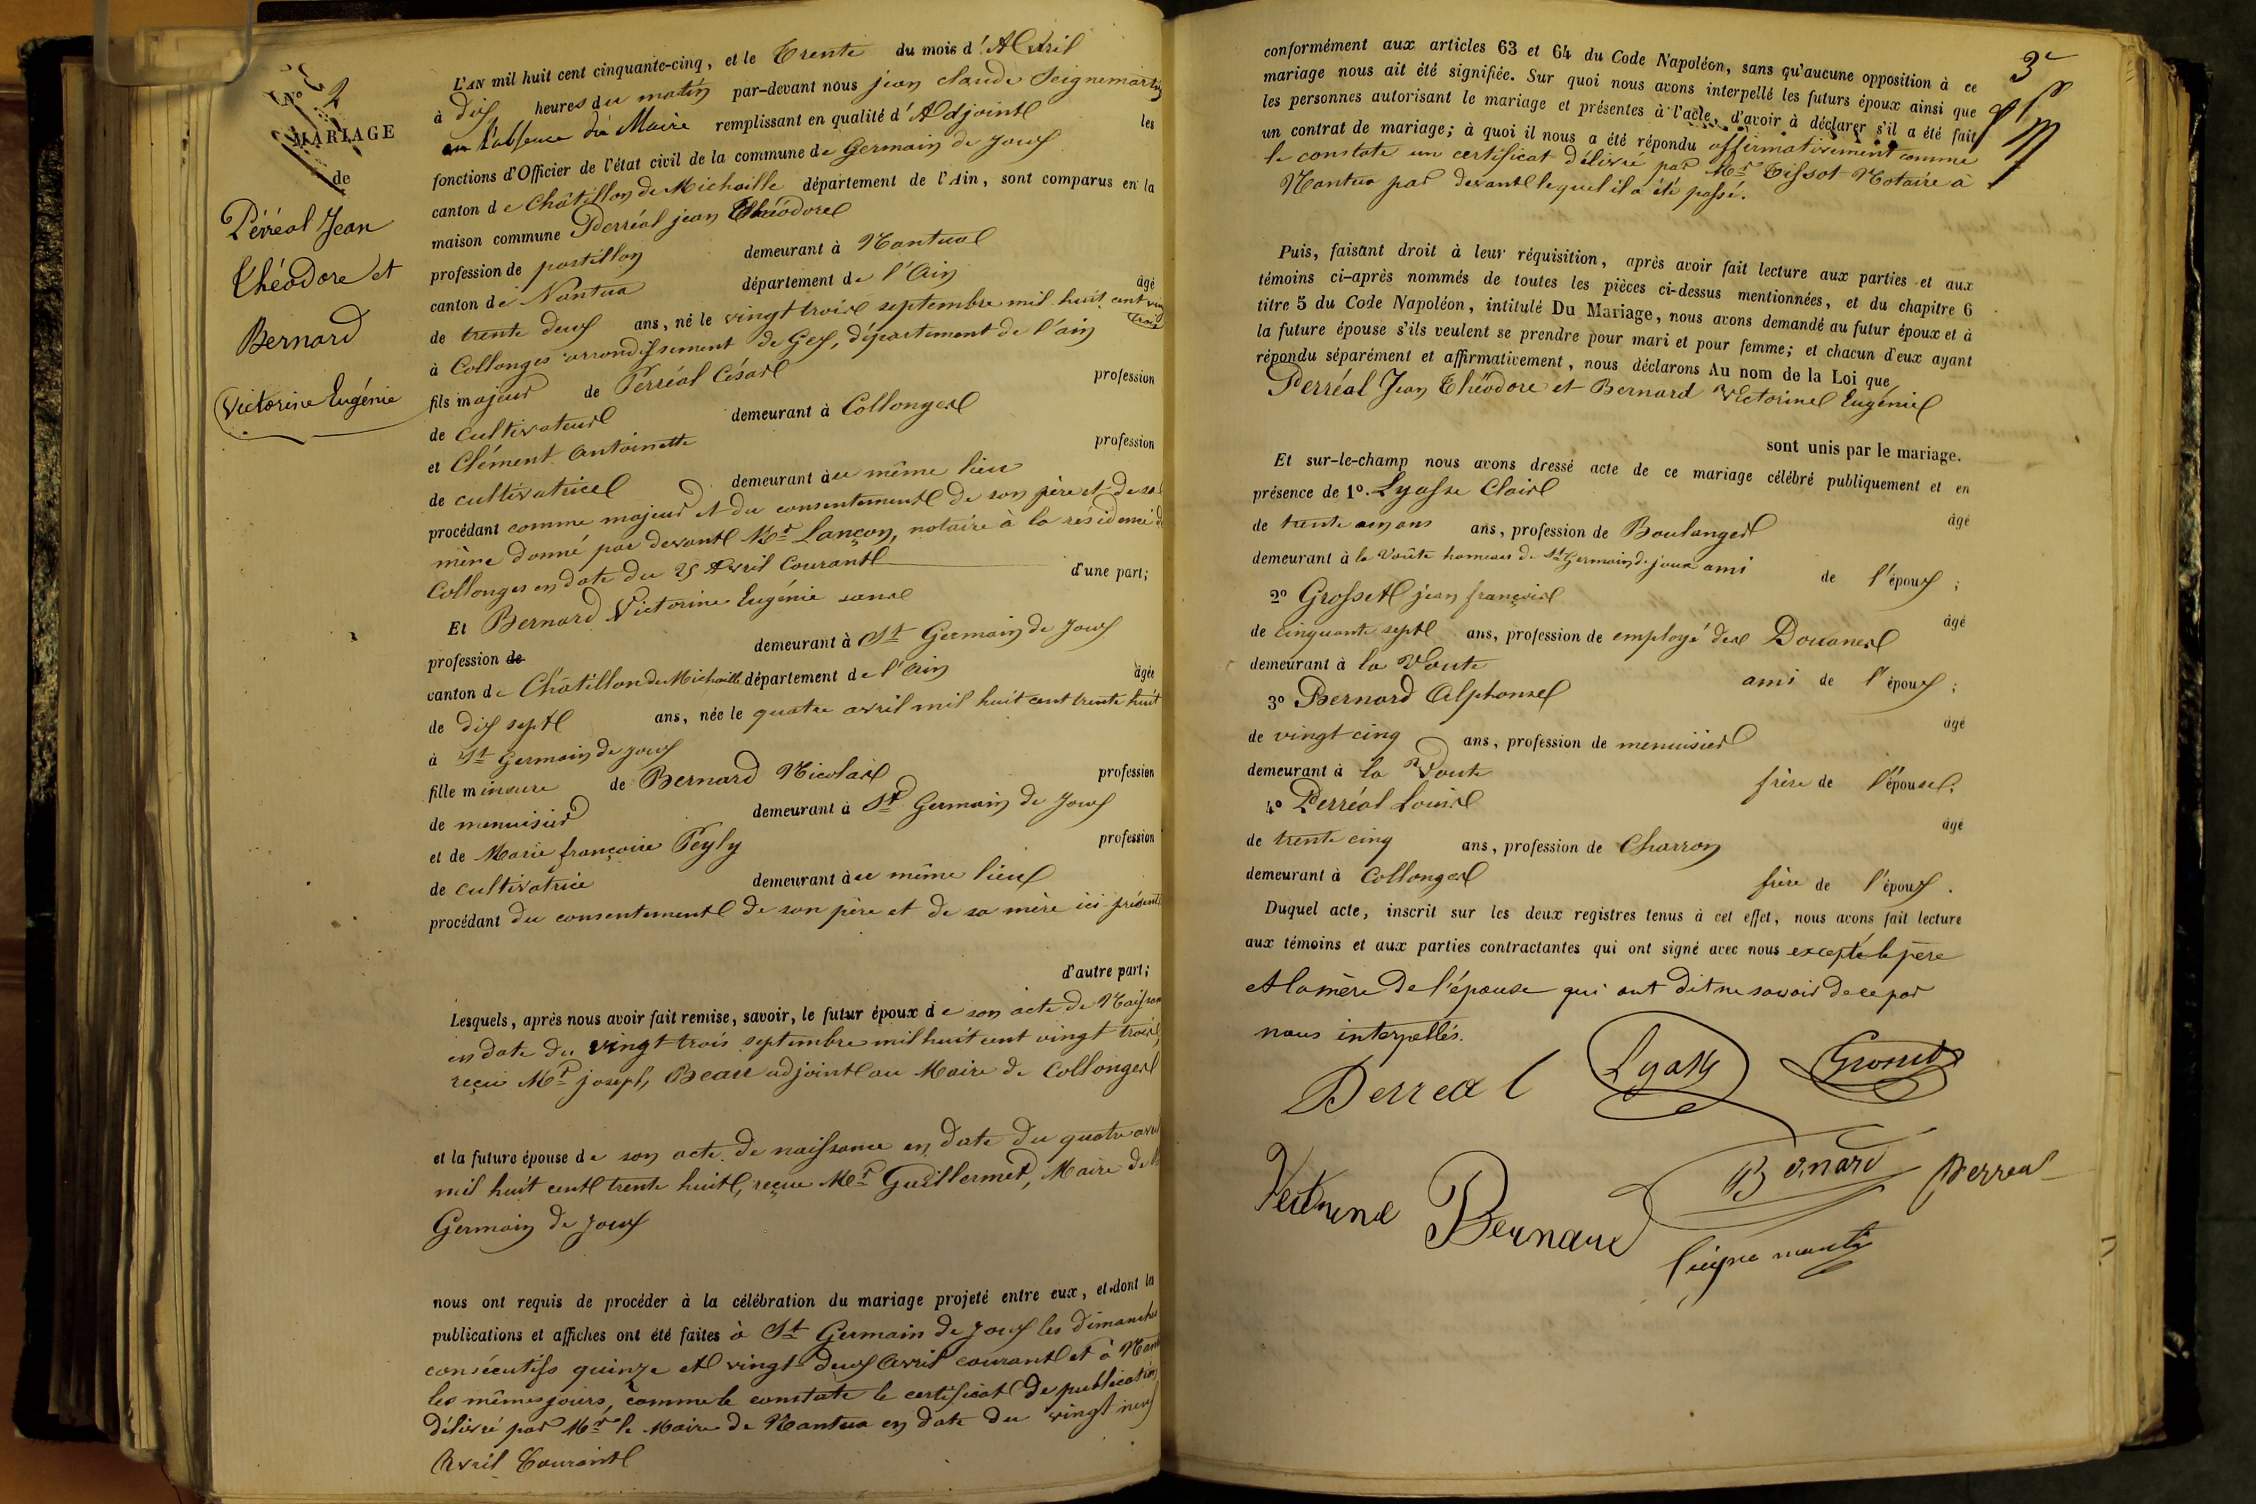 No 2
MARIAGE
de
Perréal Jean
Théodore et
Bernard
Victorine Eugénie
L'AN mil huit cent cinquante-cinq, et le Trente du mois d'Avril
à dix heures du matin par-devant nous jean claude Seignemartin
en l'absence du Maire remplissant en qualité d'Adjoint les
fonctions d'Officier de l'état civil de la commune de Germain de Joux
canton de Châtillon de Michaille département de l'Ain, sont comparus en la
maison commune Perréal jean Théodore
profession de postillon demeurant à Nantua
canton de Nantua département de l'Ain âgé
de trente deux ans, né le vingt trois septembre mil huit cent vingt trois
à Collonges arrondissement de Gex, département de l'ain
fils majeur de Perréal César profession
de cultivateur demeurant à Collonges
et Clément Antoinette profession
de cultivatrice demeurant à u même lieu
procédant comme majeur et du consentement de son père et de sa
mère donné par devant Mr Lançon, notaire à la résidence de
Collonges en date du 25 Avril Courant d'une part;
Et Bernard Victorine Eugénie sans
profession de demeurant à St Germain de Joux
canton de Châtillon de Michaille département de l'Ain âgée
de dix sept ans, née le quatre avril mil huit cent trente huit
à St Germain de Joux
fille mineure de Bernard Nicolas profession
de menuisier demeurant à St Germain de Joux
et de Marie françoise Peyly profession
de cultivatrice demeurant à u même lieu
procédant du consentement de son père et de sa mère ici présents
d'autre part;
Lesquels, après nous avoir fait remise, savoir, le futur époux de son acte de Naissance
en date du vingt trois septembre mil huit cent vingt trois,
reçu Mr joseph Beau adjoint au Maire de Collonges
et la future épouse de son acte de naissance en date du quatre avril
mil huit cent trente huit, reçue Mr Guillermet, Maire de
Germain de Joux
nous ont requis de procéder à la célébration du mariage projeté entre eux, et dont la
publications et affiches ont été faites à St Germain de Joux les dimanches
consécutifs quinze et vingt deux Avril courant et à Nantua
les mêmes jours, comme le constate le certificat de publication
délivré par Mr le Maire de Nantua en date du vingt neuf
Avril Courant
3e
conformément aux articles 63 et 64 du Code Napoléon, sans qu'aucune opposition à ce
mariage nous ait été signifiée. Sur quoi nous avons interpellé les futurs époux ainsi que
les personnes autorisant le mariage et présentes à l'acte, d'avoir à déclarer s'il a été fait
un contrat de mariage; à quoi il nous a été répondu affirmativement comme
le constate un certificat délivré par Mr Tissot Notaire à
Nantua par devant lequel il a été passé.
Puis, faisant droit à leur réquisition, après avoir fait lecture aux parties et aux
témoins ci-après nommés de toutes les pièces ci-dessus mentionnées, et du chapitre 6
titre 5 du Code Napoléon, intitulé Du Mariage, nous avons demandé au futur époux et à
la future épouse s'ils veulent se prendre pour mari et pour femme; et chacun d'eux ayant
répondu séparément et affirmativement, nous déclarons Au nom de la Loi que
Perréal Jean Théodore et Bernard Victorine Eugénie
sont unis par le mariage.
Et sur-le-champ nous avons dressé acte de ce mariage célébré publiquement et en
présence de 1o. Lyasse Clair
âgé
de trente ans, profession de Boulanger
demeurant à la Voûte hameau de St Germain de joux ami de l'époux;
2o Grosset jean françois
âgé
de cinquante sept ans, profession de employé des Douanes
demeurant à la Voute ami de l'époux;
3o Bernard Alphonse
âgé
de vingt cinq ans, profession de menuisier
demeurant à la Voute frère de l'épouse;
4o Perréal Louis
âgé
de trente cinq ans, profession de Charron
demeurant à Collonges frère de l'époux.
Duquel acte, inscrit sur les deux registres tenus à cet effet, nous avons fait lecture
aux témoins et aux parties contractantes qui ont signé avec nous excepté le père
et la mère de l'épouse qui ont dit ne savoir de ce par
nous interpellés.
Perreal Lyasse Grosset
Victorine Bernard Bernard Perreal
Seignemartin